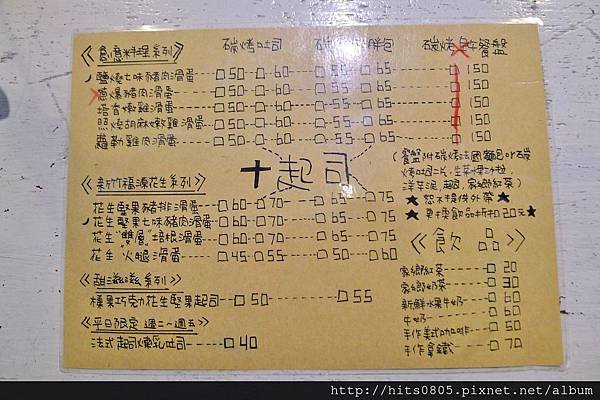 《創意料理系列》 碳烤吐司 碳 胖包 碳烤 早午餐盤
鹽燒七味豬肉滑蛋 50 60 55 65 150
蔥爆豬肉滑蛋 50 60 55 65 150
培香嫩雞滑蛋 50 60 55 65 150
照燒胡麻嫩雞滑蛋 50 60 55 65 150
蘿勒雞肉滑蛋 50 60 55 65 150
+起司
(餐盤附碳烤法國麵包or碳
烤吐司二片,生菜水果沙拉,
洋芋泥,起司,家鄉紅茶)
★恕不提供外帶★
★單換飲品折扣20元★
《新竹福源花生系列》
花生堅果豬排滑蛋 60 70 65 75
花生堅果七味豬肉滑蛋 60 70 65 75
花生"雙層"培根滑蛋 60 70 65 75
花生"火腿滑蛋 45 55 50 60
《甜滋滋系列》
榛果巧克力花生堅果起司 50 55
《平日限定 週二~週五》
法式起司煉乳吐司 40
《飲 品》
家鄉紅茶 20
家鄉奶茶 30
新鮮水果牛奶 60
牛奶 40
手作美式咖啡 50
手作拿鐵 70
http://hits0805.pixnet.net/album